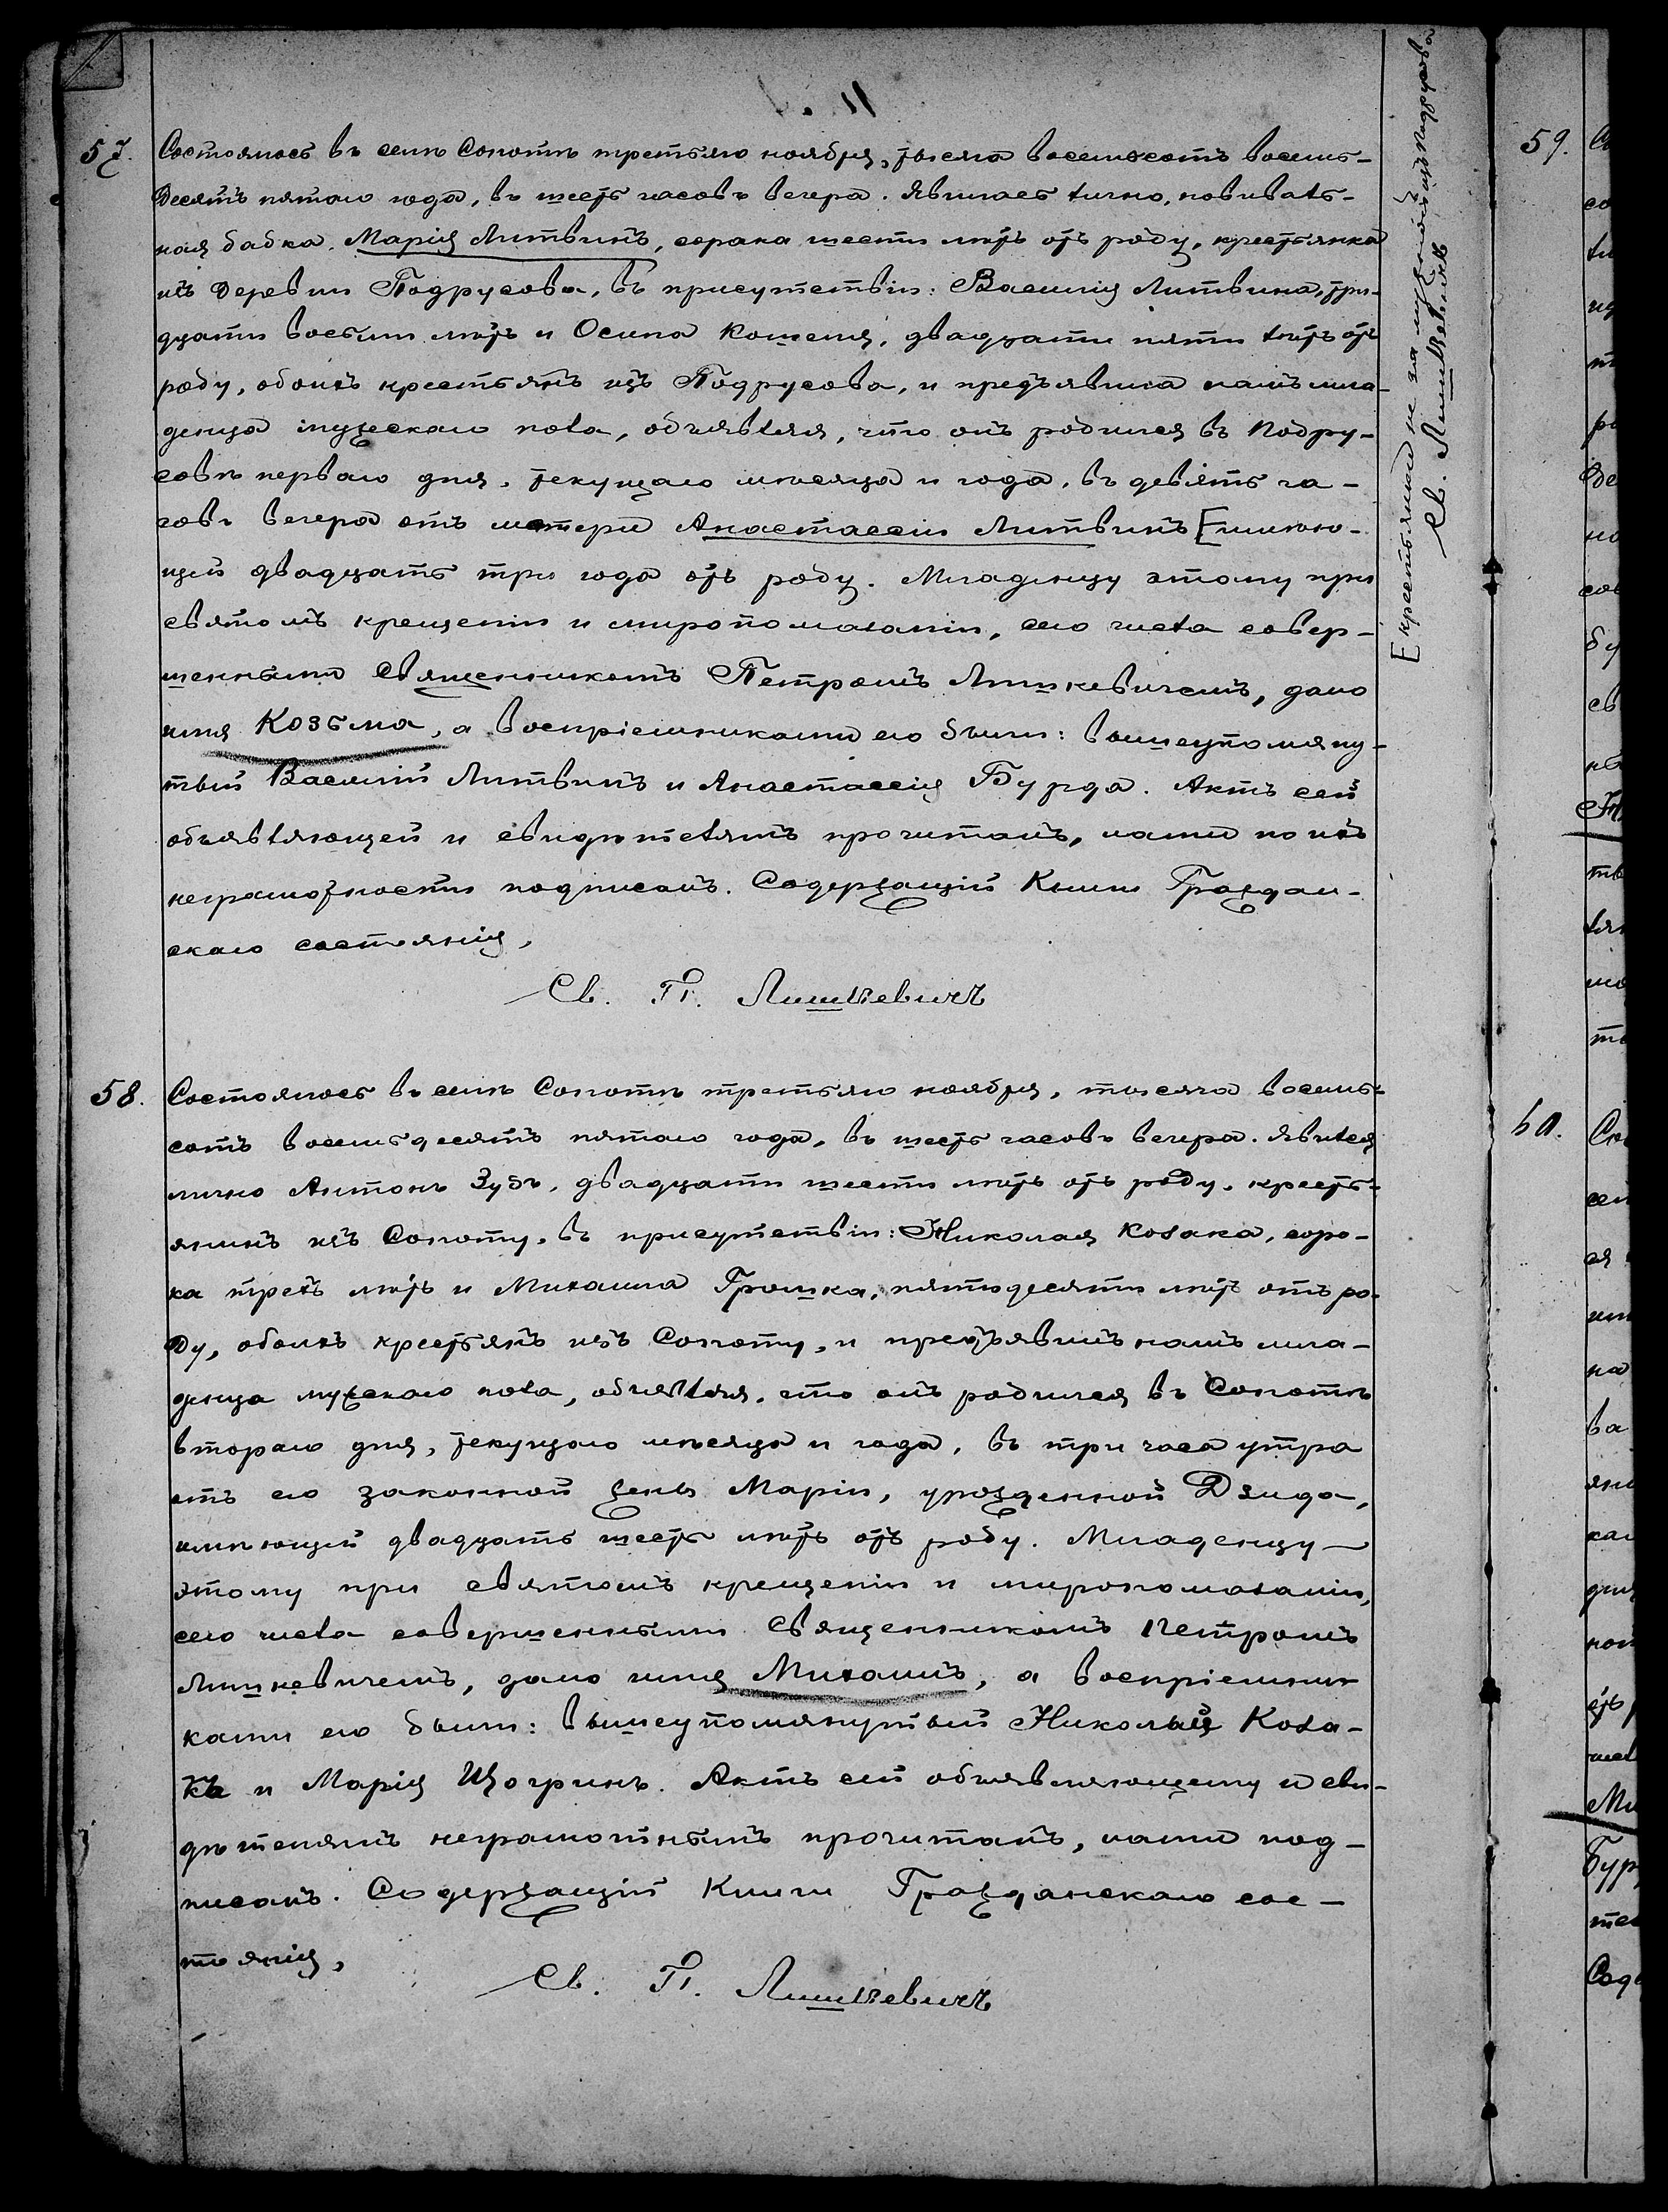 57.
Состоялось въ селѣ Сопотѣ третьяго ноября, тысяча восемьсотъ восемь-
десятъ пятаго года, въ шесть часовъ вечера. Явилась лично, повиваль-
ная бабка, Марія Литвинъ, сорока шести лѣтъ отъ роду, крестьянка
изъ деревни Подрусова, въ присутствіи: Василія Литвина, три-
дцати восьми лѣтъ и Осипа Кошеля, двадцати пяти лѣтъ отъ
роду, обоихъ крестьянъ изъ Подрусова, и предъявила намъ мла-
денца мужескаго пола, объявляя, что онъ родился въ Подру-
совѣ перваго дня, текущаго мѣсяца и года, въ девять ча-
совъ вечера отъ матери Анастассіи Литвинъ [имѣю-
щей двадцать три года отъ роду. Младенцу этому при
святомъ крещеніи и миропомазаніи, сего числа совер-
шенными Священникомъ Петромъ Лишкевичемъ, дано
имя Козьма, а воспріемниками его были: вышеупомяну-
тый Василій Литвинъ и Анастассія Бурда. Актъ сей
объявляющей и свидѣтелямъ прочитанъ, нами по ихъ
неграмотности подписанъ. Содержащій Книги Граждан-
скаго состоянія,
Св. П. Лишкевичъ
[крестьянки не замужной изъ Подрусова
Св. Лишкевичъ
58.
Состоялось въ селѣ Сопотѣ третьяго ноября, тысяча восемь-
сотъ восемьдесятъ пятаго года, въ шесть часовъ вечера. Явился
лично Антонъ Зубъ, двадцати шести лѣтъ отъ роду, кресть-
янинъ изъ Сопоту, въ присутствіи: Николая Козака, соро-
ка трехъ лѣтъ и Михаила Грошка, пятидесяти лѣтъ отъ ро-
ду, обоихъ крестьянъ изъ Сопоту, и предъявилъ намъ мла-
денца мужскаго пола, объявляя, что онъ родился въ Сопотѣ
втораго дня, текущаго мѣсяца и года, въ три часа утра
отъ его законной жены Маріи, урожденной Дзида,
имѣющей двадцать шесть лѣтъ отъ роду. Младенцу
этому при святомъ крещеніи и миропомазаніи,
сего числа совершенными Священникомъ Петромъ
Лишкевичемъ, дано имя Михаилъ, а воспріемни-
ками его были: вышеупомянутый Николай Коза-
къ и Марія Цогринъ. Актъ сей объявляющему и сви-
дѣтелямъ неграмотнымъ прочитанъ, нами под-
писанъ. Содержащій Книги Гражданскаго сос-
тоянія,
Св. П. Лишкевичъ
59.
60.